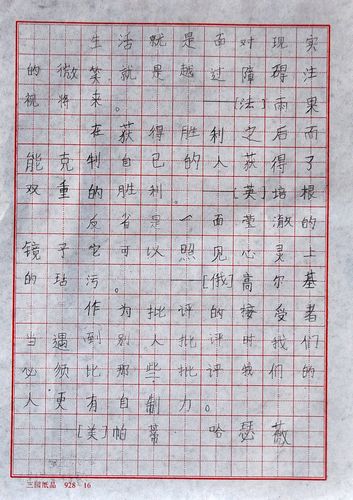 生活就是面对现实
的微笑就是越过障碍注
视将来。——[法]雨果
在获得胜利之后而
能克制自己的人获得了
双重的胜利。——[英]培根
反省是一面莹澈的
镜子它可以照见心灵上
的玷污。——[俄]高尔基
作为批评的接受者
当遇到别人批评时我们
必须比那些批评我们的
人更有自制力。
[美]帕蒂 哈瑟薇
三园纸品 928 16